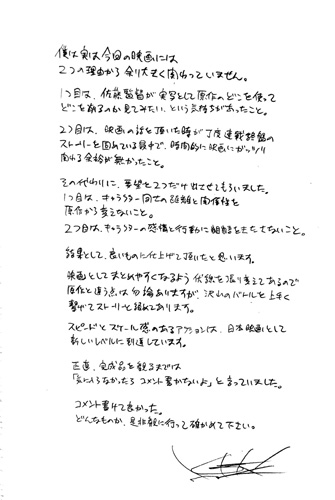 僕は実は今回の映画には
2つの理由から余り大きく関わっていません。
1つ目は、佐藤監督が実写として原作のどこを使って
どこを削るのか見てみたい、という気持ちがあったこと。
2つ目は、映画の話を頂いた時が丁度連載終盤の
ストーリーを固めている最中で、時間的に映画にガッツリ
関わる余裕が無かったこと。
その代わりに、要望を2つだけ出させてもらいました。
1つ目は、キャラクター同士の距離と関係性を
原作から変えないこと。
2つ目は、キャラクターの感情と行動に齟齬をきたさないこと。
結果として、良いものに仕上げて頂いたと思います。
映画としてまとめやすくなるよう伏線を張り変えてあるので
原作と違う点は勿論ありますが、沢山のバトルを上手く
繋げてストーリーを綴ってあります。
スピードとスケール感のあるアクションは、日本映画として
新しいレベルに到達しています。
正直、完成品を観るまでは
「気に入らなかったらコメント書かないよ」と言っていました。
コメント書けて良かった。
どんなものか、是非観に行って確かめて下さい。